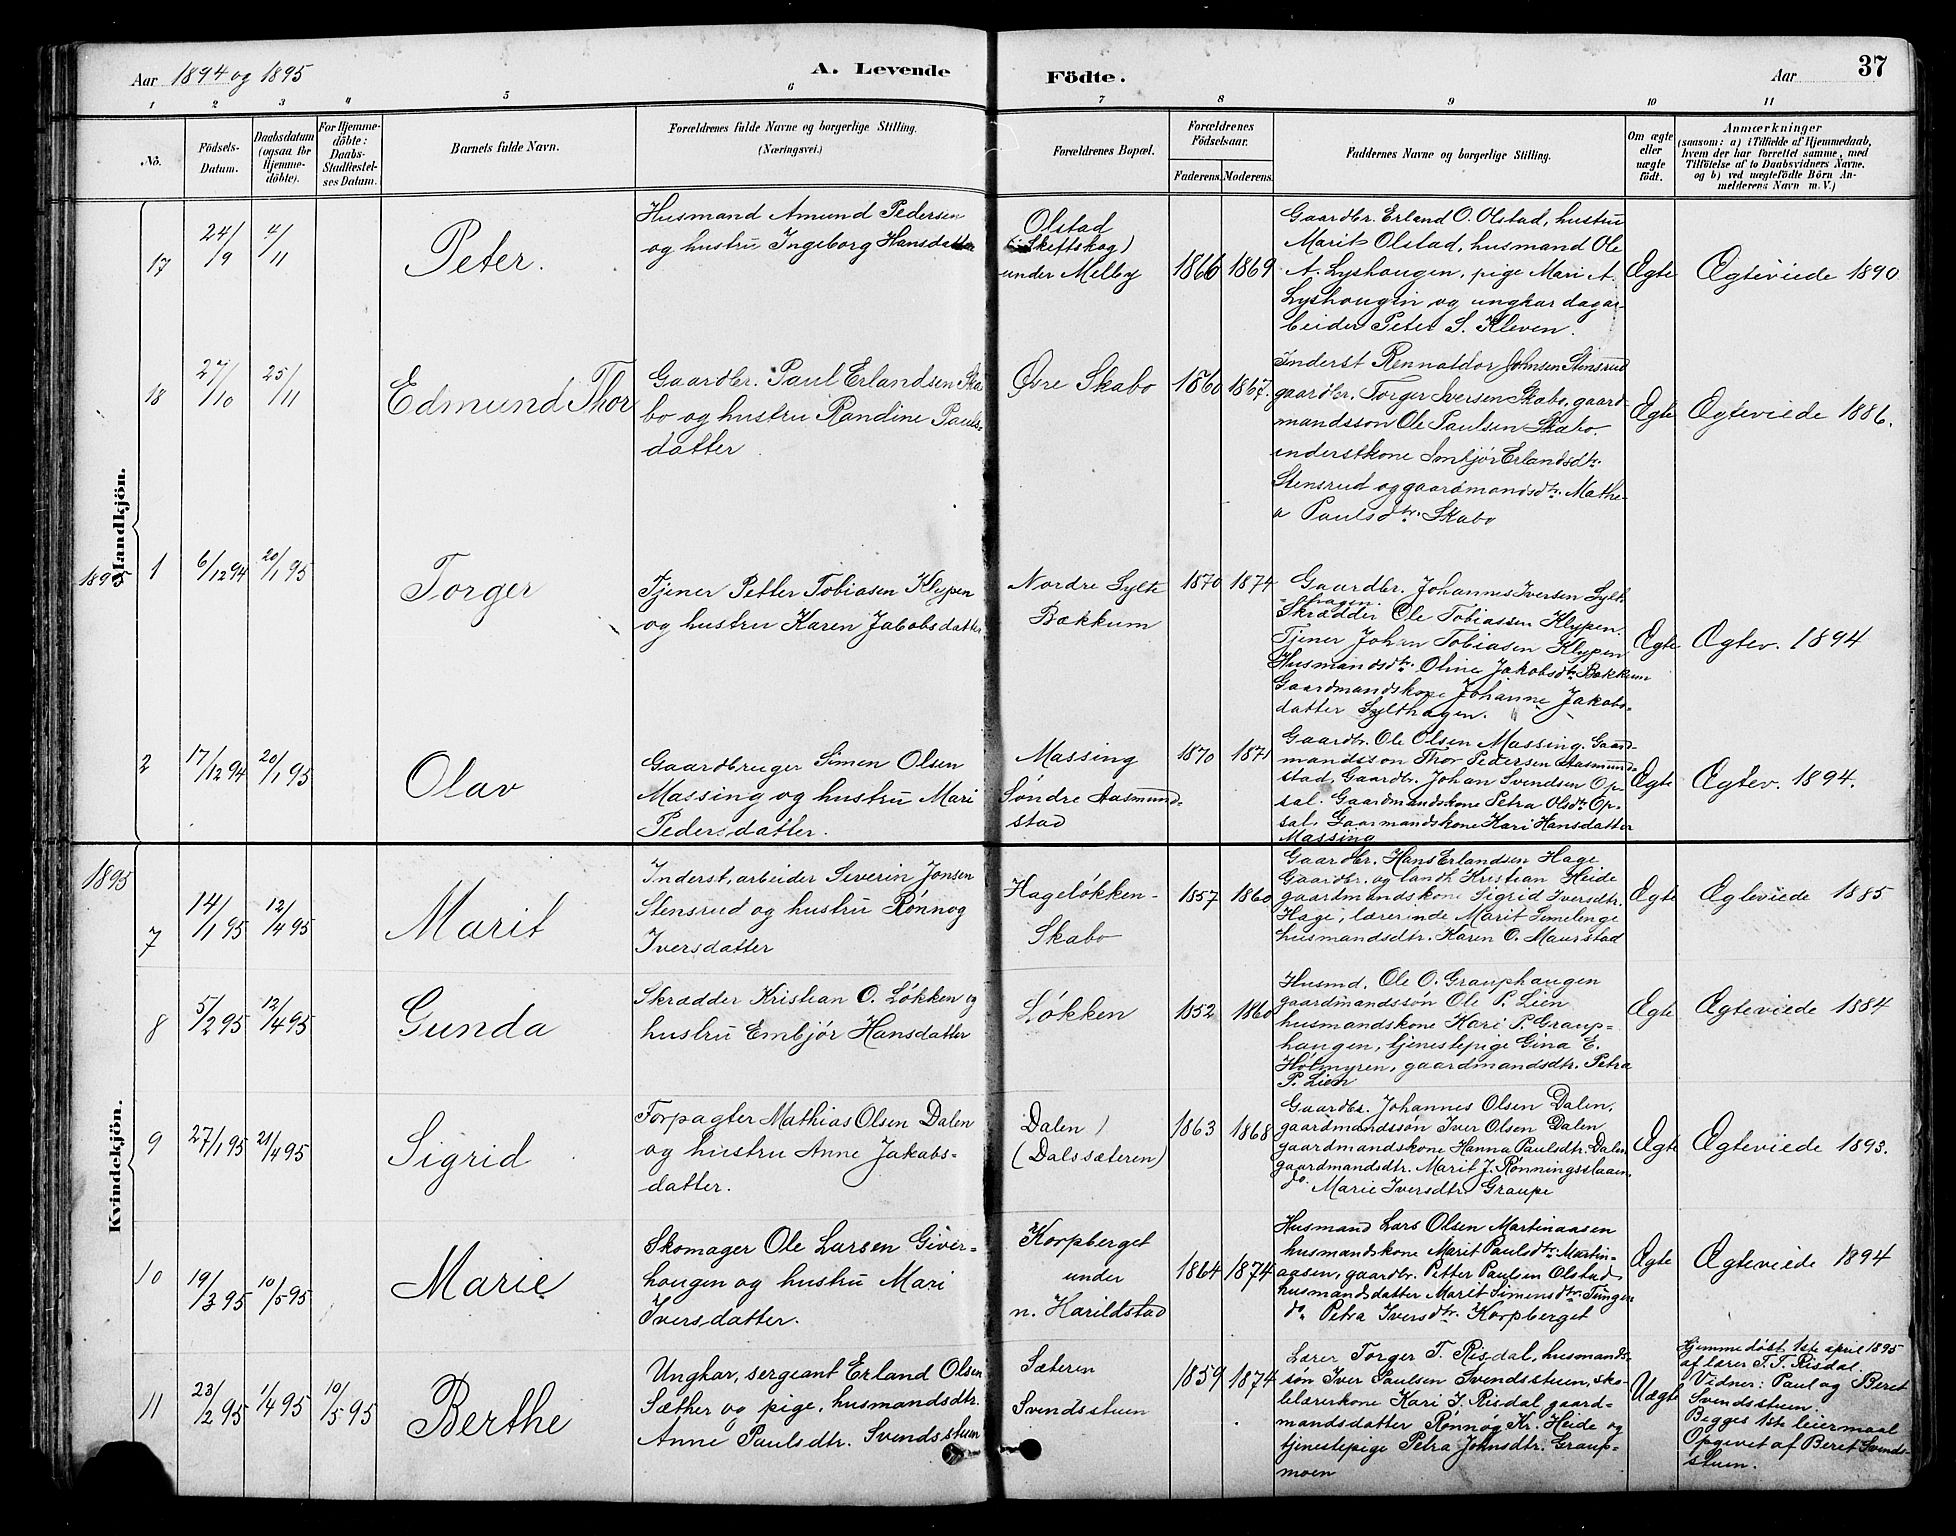 Aar 1894 og 1895
A. Levende Födte.
Aar
37
1 2 3 4 5 6 7 8 9 10 11
No.
Födsels-
Datum.
Daabsdatum
(ogsaa for
Hjemme-
döbte).
For Hjemme-
döbte:
Daabs-
Stadfæstel-
ses Datum.
Barnets fulde Navn.
Forældrenes fulde Navne og borgerlige Stilling.
(Næringsvei.)
Forældrenes Bopæl.
Forældrenes
Födselsaar.
Faderens. Moderens.
Faddernes Navne og borgerlige Stilling.
Om ægte
eller
uægte
födt.
Anmærkninger
(saasom: a) i Tilfælde af Hjemmedaab,
hvem der har forrettet samme, med
Tilföielse af to Daabsvidners Navne.
og b) ved uægtefödte Börn An-
melderens Navn m. V.)
Mandkjön.
17
24/9
4/11
Peter.
Husmand Amund Pedersen
og hustru Ingeborg Hansdatter
Olstad
(i Skeftskog)
under Melby
1866
1869
Gaardbr. Erland O. Olstad, hustru
Marit Olstad, husmand Ole
A. Lyshougen, pige Mari A.
Lyshougin og ungkar dagar-
beider Peter S. Kleven.
Ægte
Ægteviede 1890
18
27/10
25/11
Edmund Thor
Gaardbr. Paul Erlandsen Ska-
bo og hustru Randine Pauls-
datter
Øvre Skabo
1860
1867.
Inderst Rennaldor Johnsen Stensrud
gaardbr. Torger Iversen Skabo, gaard-
mandssøn Ole Paulsen Skabo.
inderstkone Imbjør Erlandsdtr.
Stensrud og gaardmandsdtr. Mathe-
a Paulsdtr. Skabo
Ægte
Ægteviede 1886.
1895
1
6/12 94
20/1 95
Torger
Tjener Petter Tobiasen Klypen
og hustru Karen Jakobsdatter
Nordre Sylte
Bækkum
1870
1874
Gaardbr. Johannes Iversen Sylt-
hagen.
Skrædder Ole Tobiassen Klypen.
Tjener Johan Tobiasen Klypen
Husmandsdtr. Oline Jakobsdtr. Bækkum
Gaardmandskone Johanne Jakobs-
datter Sylthagen.
Ægte
Ægtev. 1894
2
17/12 94
20/1 95
Olav
Gaardbruger Simen Olsen
Massing og hustru Mari
Pedersdatter.
Massing
Søndre Aasmund-
stad
1870
1871
Gaardbr. Ole Olsen Massing. Gaard-
mandssøn Thor Pedersen Aasmund-
stad, Gaardbr. Johan Svendsen Op-
sal. Gaardmandskone Petra Olsdtr. Op-
sal. Gaarmandskone Kari Hansdatter
Massing
Ægte
Ægtev. 1894.
1895
Kvindekjön.
7
14/1 95
12/4 95
Marit
Inderst, arbeider Severin Jonsen
Stensrud og hustru Rønnog
Iversdatter
Hageløkken-
Skabo
1857
1860
Gaardbr. Hans Erlandsen Hage
Gaardbr. og landh. Kristian Heide
gaardmandskone Sigrid Iversdtr.
Hage, lærerinde Marit Simelenge
husmandsdtr. Karen O. Maurstad
Ægte
Ægteviede 1885
8
5/2 95
12/4 95
Gunda
Skrædder Kristian O. Løkken og
hustru Embjør Hansdatter
Løkken
1852
1860
Husmd. Ole O. Grauphaugen
gaardmandssøn Ole P. Lien
husmandskone Kari P. Graup-
haugen, tjenestepige Gina E.
Holmyren, gaardmandsdtr. Petra
P. Lien
Ægte
Ægteviede 1884
9
27/1 95
21/4 95
Sigrid
Forpagter Mathias Olsen Dalen
og hustru Anne Jakobs-
datter.
Dalen
(Dalssæteren)
1863
1868
Gaardbr. Johannes Olsen Dalen,
gaardmandssøn Iver Olsen Dalen
gaardmandskone Hanna Paulsdtr. Dalen
gaardmandsdtr. Marit J. Rønningsstaaen
do. Marie Iversdtr. Graupe
Ægte
Ægteviede 1893.
10
19/3 95
10/5 95
Marie
Skomager Ole Larsen Giver-
hougen og hustru Mari
Iversdatter.
Korpberget
under
n. Harildstad
1864
1874
Husmand Lars Olsen Martinaasen
husmandskone Marit Paulsdtr. Martin-
aasen, gaardbr. Petter Paulsen Olstad
husmandsdatter Marit Simensdtr. Tungen
do. Petra Iversdtr. Korpberget
Ægte
Ægteviede 1894
11
23/2 95
1/4 95
10/5 95
Berthe
Ungkar, sergeant Erland Olsen
Sæther og pige, husmandsdtr.
Anne Paulsdtr. Svendsstuen
Sæteren
Svendsstuen
1859
1874
Lærer Torger T. Risdal, husmands-
søn Iver Paulsen Svendsstuen, sko-
lelærerkone Kari I. Risdal, gaard-
mandsdatter Rønnøg Kr. Heide og
tjenestepige Petra Johnsdtr. Graup-
moen
Uægte
Hjemmedøbt 1ste april 1895
af lærer T. T. Risdal.
Vidner: Paul og Beret
Svendsstuen.
Begges 1ste leiermaal
Opgivet af Beret Svends-
stuen.